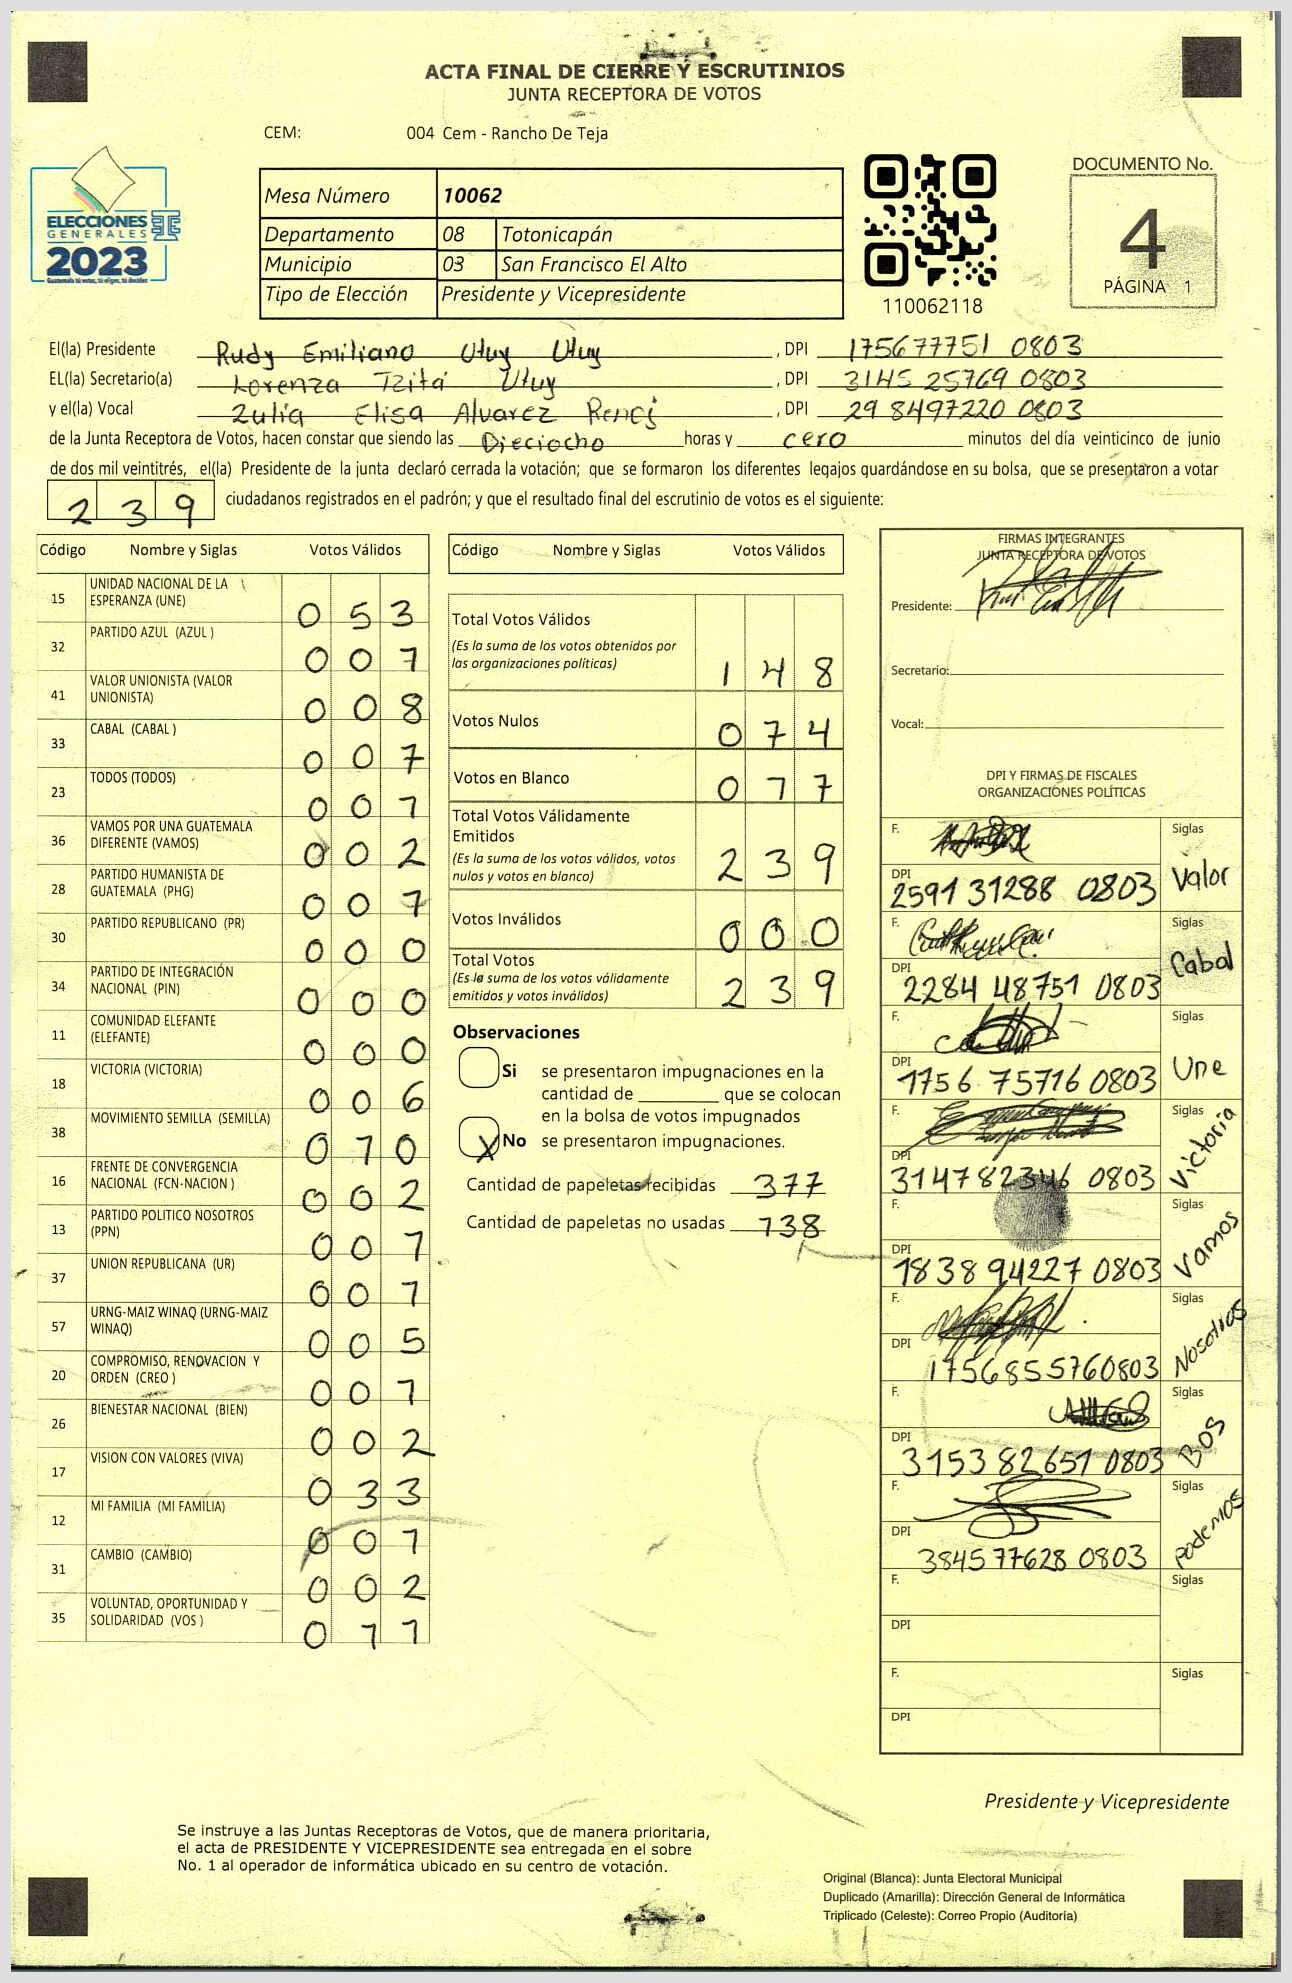 ACTA FINAL DE CIERRE Y ESCRUTINIOS
JUNTA RECEPTORA DE VOTOS
CEM: 004 Cem - Rancho De Teja
ELECCIONES
GENERALES
2023
Guatemala tú votas, tú eliges, tú decides
Mesa Número 10062
Departamento 08 Totonicapán
Municipio 03 San Francisco El Alto
Tipo de Elección Presidente y Vicepresidente
110062118
DOCUMENTO No.
4
PÁGINA 1
El(la) Presidente Rudy Emiliano Utuy Utuy, DPI 175677751 0803
EL(la) Secretario(a) Lorenza Tzitá Utuy, DPI 3145 25769 0803
y el(la) Vocal Zulia Elisa Alvarez, DPI 29 8497220 0803
de la Junta Receptora de Votos, hacen constar que siendo las Dieciocho horas y cero minutos del día veinticinco de junio
de dos mil veintitrés, el(la) Presidente de la junta declaró cerrada la votación; que se formaron los diferentes legajos quardándose en su bolsa, que se presentaron a votar
239 ciudadanos registrados en el padrón; y que el resultado final del escrutinio de votos es el siguiente:
Código Nombre y Siglas Votos Válidos
15 UNIDAD NACIONAL DE LA ESPERANZA (UNE) 053
32 PARTIDO AZUL (AZUL ) 001
41 VALOR UNIONISTA (VALOR UNIONISTA) 008
33 CABAL (CABAL ) 007
23 TODOS (TODOS) 001
36 VAMOS POR UNA GUATEMALA DIFERENTE (VAMOS) 002
28 PARTIDO HUMANISTA DE GUATEMALA (PHG) 001
30 PARTIDO REPUBLICANO (PR) 000
34 PARTIDO DE INTEGRACIÓN NACIONAL (PIN) 000
11 COMUNIDAD ELEFANTE (ELEFANTE) 000
18 VICTORIA (VICTORIA) 006
38 MOVIMIENTO SEMILLA (SEMILLA) 010
16 FRENTE DE CONVERGENCIA NACIONAL (FCN-NACION ) 002
13 PARTIDO POLITICO NOSOTROS (PPN) 001
37 UNION REPUBLICANA (UR) 001
57 URNG-MAIZ WINAQ (URNG-MAIZ WINAQ) 005
20 COMPROMISO, RENOVACION Y ORDEN (CREO ) 001
26 BIENESTAR NACIONAL (BIEN) 002
17 VISION CON VALORES (VIVA) 033
12 MI FAMILIA (MI FAMILIA) 001
31 CAMBIO (CAMBIO) 002
35 VOLUNTAD, OPORTUNIDAD Y SOLIDARIDAD (VOS ) 011
Código Nombre y Siglas Votos Válidos
Total Votos Válidos 148
(Es la suma de los votos obtenidos por
las organizaciones políticas)
Votos Nulos 074
Votos en Blanco 017
Total Votos Válidamente
Emitidos 239
(Es la suma de los votos válidos, votos
nulos y votos en blanco)
Votos Inválidos 000
Total Votos 239
(Es la suma de los votos válidamente
emitidos y votos inválidos)
Observaciones
Si se presentaron impugnaciones en la
cantidad de ________ que se colocan
en la bolsa de votos impugnados
X No se presentaron impugnaciones.
Cantidad de papeletas recibidas 377
Cantidad de papeletas no usadas 138
FIRMAS INTEGRANTES
JUNTA RECEPTORA DE VOTOS
Presidente:
Secretario:
Vocal:
DPI Y FIRMAS DE FISCALES
ORGANIZACIONES POLÍTICAS
F. Siglas
DPI 2591 31288 0803 Valor
F. Siglas
DPI 2284 48751 0803 Cabal
F. Siglas
DPI 1756 75716 0803 Une
F. Siglas
DPI 3147 82346 0803 Victoria
F. Siglas
DPI 1838 94227 0803 Vamos
F. Siglas
DPI 1756855760803 Nosotros
F. Siglas
DPI 3153 82651 0803 BOS
F. Siglas
DPI 3845 77628 0803 podemos
F. Siglas
DPI
F. Siglas
DPI
Presidente y Vicepresidente
Se instruye a las Juntas Receptoras de Votos, que de manera prioritaria,
el acta de PRESIDENTE Y VICEPRESIDENTE sea entregada en el sobre
No. 1 al operador de informática ubicado en su centro de votación.
Original (Blanca): Junta Electoral Municipal
Duplicado (Amarilla): Dirección General de Informática
Triplicado (Celeste): Correo Propio (Auditoría)